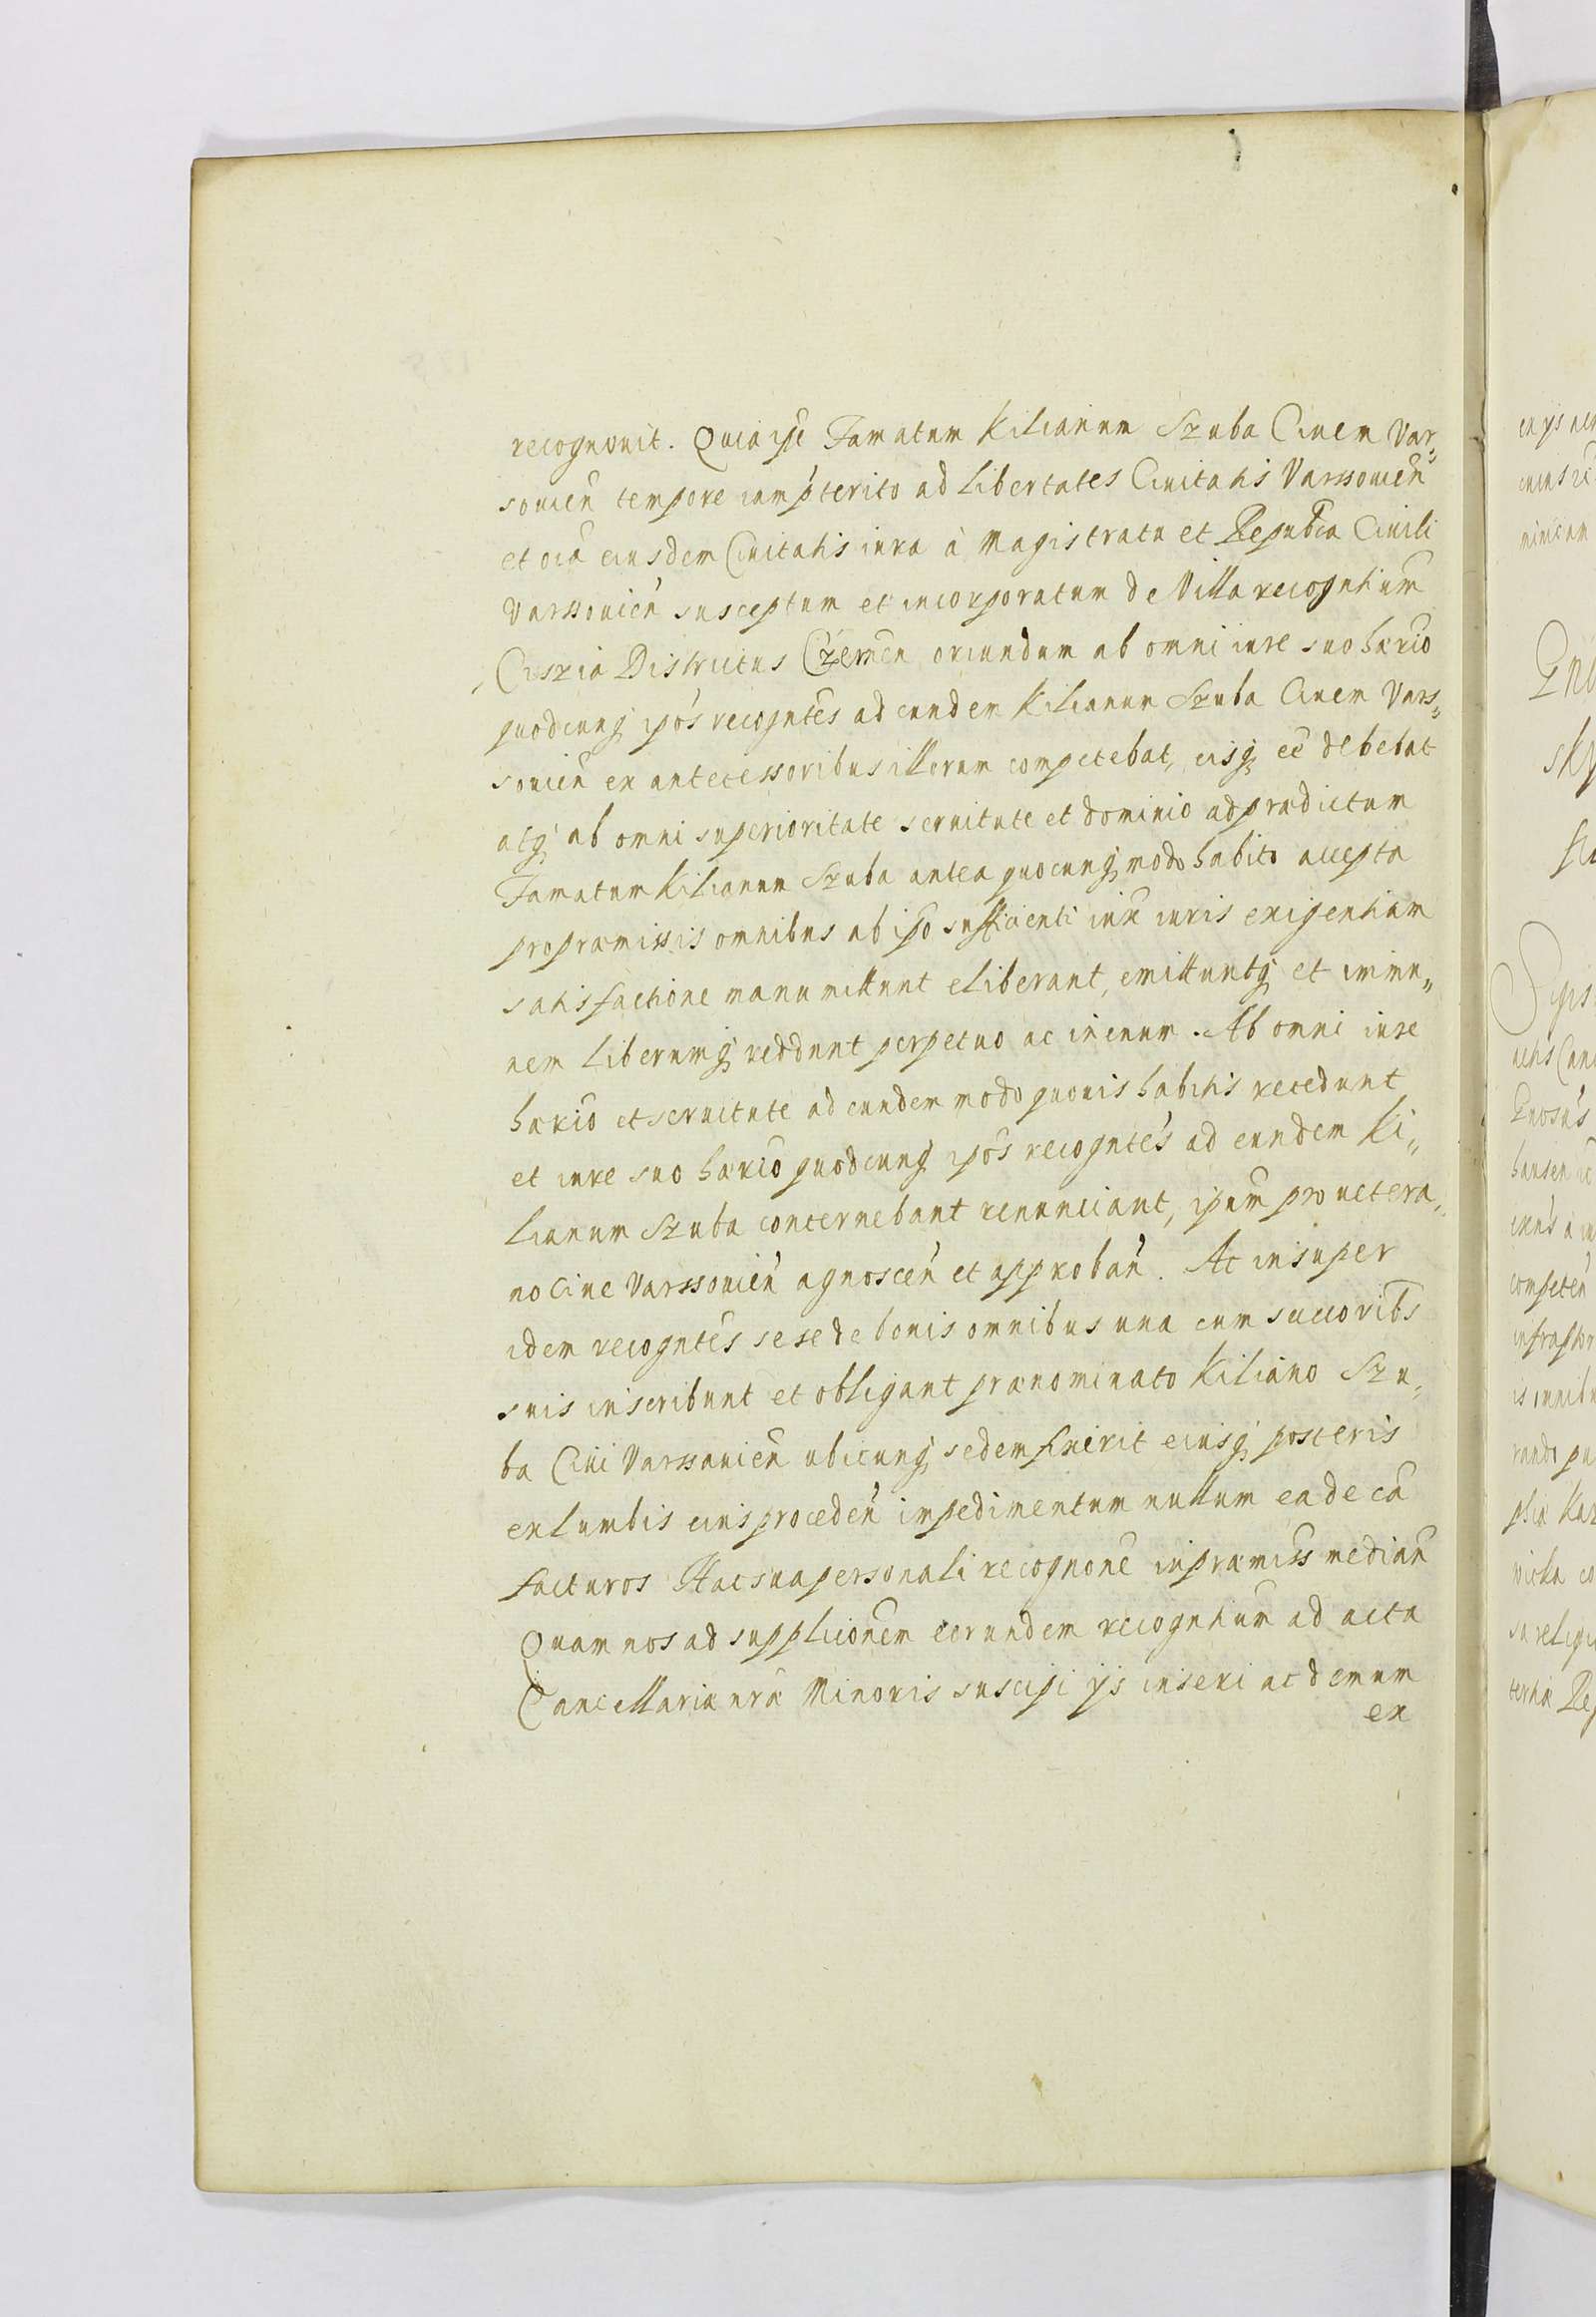 recognouit. Quia ipse Famatum Kilianum Szuba Ciuem Var,,
souien tempore iam pterito ad Libertates Ciuitatis Varssouien
et oia eiusdem Ciuitatis iura à Magistratu et Republca Ciuili
Varssouien susceptum et incorporatum de Villa recogntium
Ciszia Districtus Czernen oriundum ab omni iure suo hærio
quodcunq ipos recogntes ad eundem Kilianum Szuba Ciuem Vars,,
souien ex antecessoribus illorum competebat, eisq ee debebat
atq ab omni superioritate seruitute et dominio ad prædictum
Famatum Kilianum Szuba antea quocunq modo habito accepta
pro præmissis omnibus ab ipo sufficienti iux iuris exigentiam
satisfactione manumittunt eliberant, emittuntq et immu,,
nem Liberumq reddunt perpetuo ac in æuum. Ab omni iure
hærio et seruitute ad eundem modo quouis habitis recedunt
et iure suo hærio quodcunq ipos recogntes ad eundem Ki,,
lianum Szuba concernebant renunciant, ipum pro uetera,,
no Ciue Varssouien agnoscen et approban. Ac insuper
idem recogntes sese de bonis omnibus una cum succoribs
suis inscribunt et obligant prænominato Kiliano Szu,,
ba Ciui Varssauien ubicunq sedem fixerit eiusq posteris
ex lumbis eius proceden impedimentum nullum ea de ca
facturos Hac sua personali recognone in præmiss median
Quam nos ad supplicionem eorundem recogntium ad acta
Cancellariæ nræ Minoris suscipi ijs inseri ac demum
ex
ex ijs
Repu